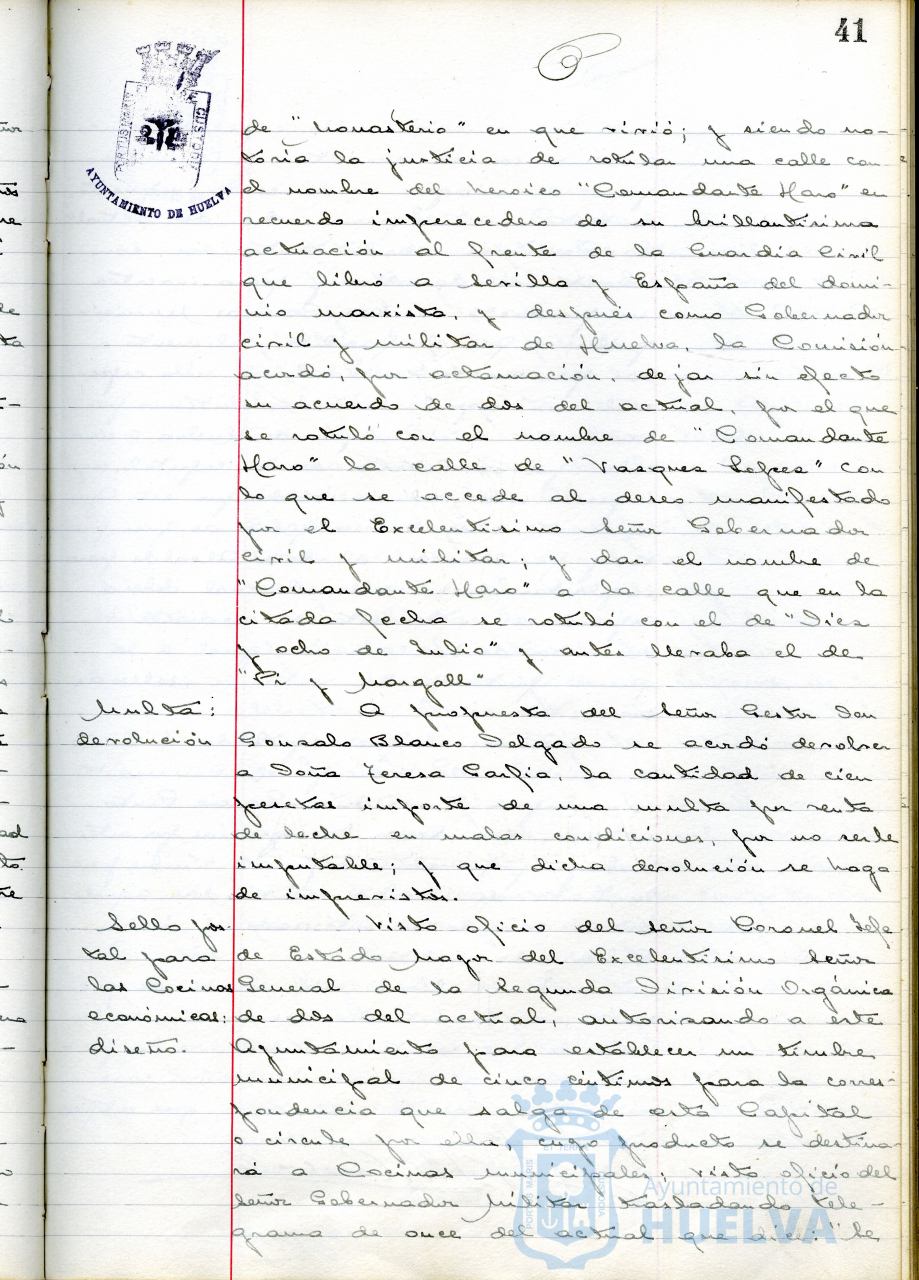 41
PORTUS MARIS
CUSTODIA
AYUNTAMIENTO DE HUELVA
de "Monasterio" en que vivió; y siendo no-
toria la justicia de rotular una calle con
el nombre del heroico "Comandante Haro" en
recuerdo imperecedero de su brillantísima
actuación al frente de la Guardia Civil
que libró a Sevilla y España del domi-
nio marxista, y después como Gobernador
civil y militar de Huelva, la Comisión
acordó, por aclamación, dejar sin efecto
su acuerdo de dos del actual, por el que
se rotuló con el nombre de "Comandante
Haro" la calle de "Vasques Lopes" con
lo que se accede al deseo manifestado
por el Excelentísimo Señor Gobernador
civil y militar; y dar el nombre de
"Comandante Haro" a la calle que en la
citada fecha se rotuló con el de "Diez
y ocho de Julio" y antes llevaba el de
"Pi y Margall"
Multa:
devolución
A propuesta del Señor Gestor Don
Gonzalo Blanco Delgado se acordó devolver
a Doña Teresa Garfia, la cantidad de cien
pesetas importe de una multa por venta
de leche en malas condiciones, por no serle
imputable; y que dicha devolución se haga
de imprevistos.
Sello pos-
tal para
las Cocinas
económicas:
diseño.
Visto oficio del señor Coronel Jefe
de Estado Mayor del Excelentísimo Señor
General de la Segunda División Orgánica
de dos del actual, autorizando a este
Ayuntamiento para establecer un timbre
municipal de cinco céntimos para la corres-
pondencia que salga de esta Capital
o circule por ella, cuyo producto se destina-
rá a Cocinas municipales; visto oficio del
señor Gobernador Militar trasladando tele-
grama de once del actual que dice: "Se
Ayuntamiento de
HUELVA